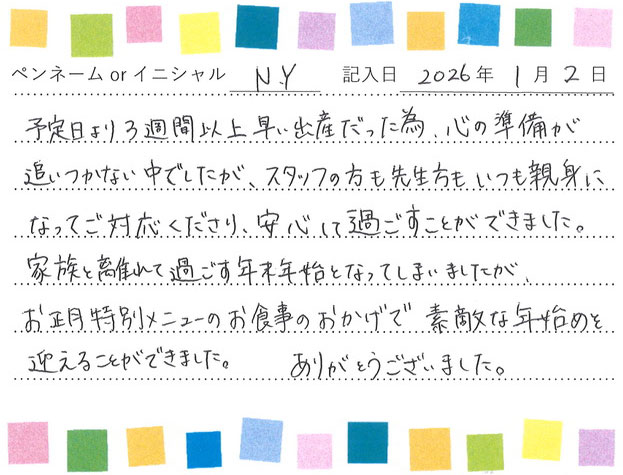 ペンネーム or イニシャル NY 記入日 2026年 1月 2日
予定日より3週間以上早い出産だった為、心の準備が
追いつかない中でしたが、スタッフの方も先生方もいつも親身に
なってご対応くださり、安心して過ごすことができました。
家族と離れて過ごす年末年始となってしまいましたが、
お正月特別メニューのお食事のおかげで素敵な年始めを
迎えることができました。 ありがとうございました。